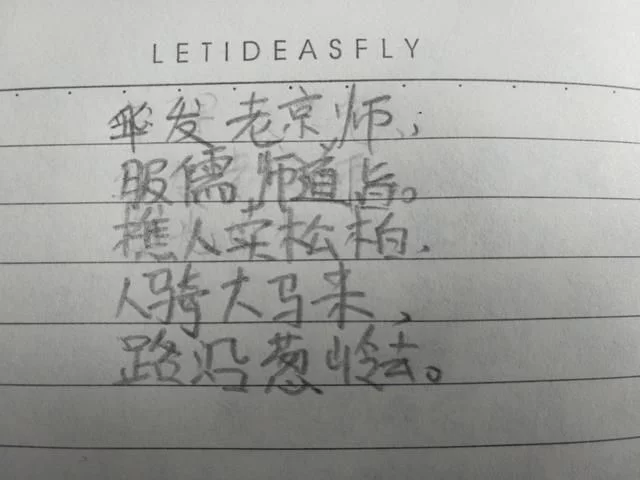 LETIDEASFLY
发老京师,
服儒师道旨。
樵人卖松柏,
人骑大马来,
路沿葱岭去。